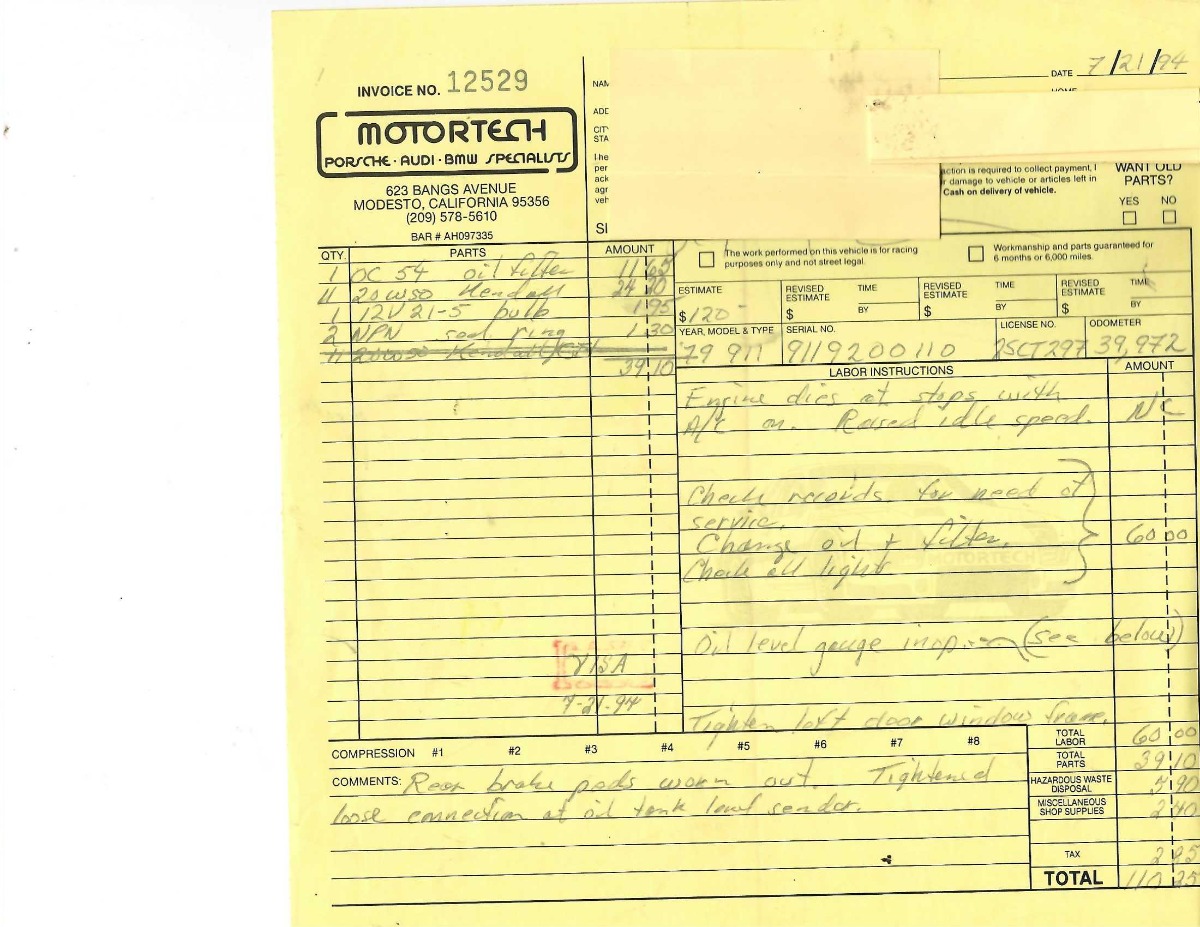 DATE 7/21/94
INVOICE NO. 12529
MOTORTECH
PORSCHE · AUDI · BMW SPECIALISTS
623 BANGS AVENUE
MODESTO, CALIFORNIA 95356
(209) 578-5610
BAR # AH097335
NAM
ADD
CIT
STA
I he
per
ack
agr
veh
SI
HOME
action is required to collect payment, I
r damage to vehicle or articles left in
Cash on delivery of vehicle.
WANT OLD
PARTS?
YES NO
QTY. PARTS AMOUNT
1 OC 54 oil filter 11 65
11 20W50 Kendall 24 20
1 12V 21-5 bulb 1 95
2 NPN seal ring 1 30
11 20W50 Kendall
39 10
VISA
7-21-94
The work performed on this vehicle is for racing
purposes only and not street legal.
Workmanship and parts guaranteed for
6 months or 6,000 miles.
ESTIMATE REVISED ESTIMATE TIME REVISED ESTIMATE TIME REVISED ESTIMATE TIME
$120 $ BY $ BY $ BY
YEAR, MODEL & TYPE SERIAL NO. LICENSE NO. ODOMETER
'79 911 9119200110 2SCT297 39,972
LABOR INSTRUCTIONS AMOUNT
Engine dies at stops with
A/C on. Raised idle speed. N/C
Check records for need of
service.
Change oil + filter. 60 00
Check all light
MOTORTECH
Oil level gauge inop. (see below)
Tighten left door window frame.
COMPRESSION #1 #2 #3 #4 #5 #6 #7 #8
COMMENTS: Rear brake pads worn out. Tightened
loose connection at oil tank level sender.
TOTAL LABOR 60 00
TOTAL PARTS 39 10
HAZARDOUS WASTE DISPOSAL 5 90
MISCELLANEOUS SHOP SUPPLIES 2 40
TAX 2 85
TOTAL 110 25